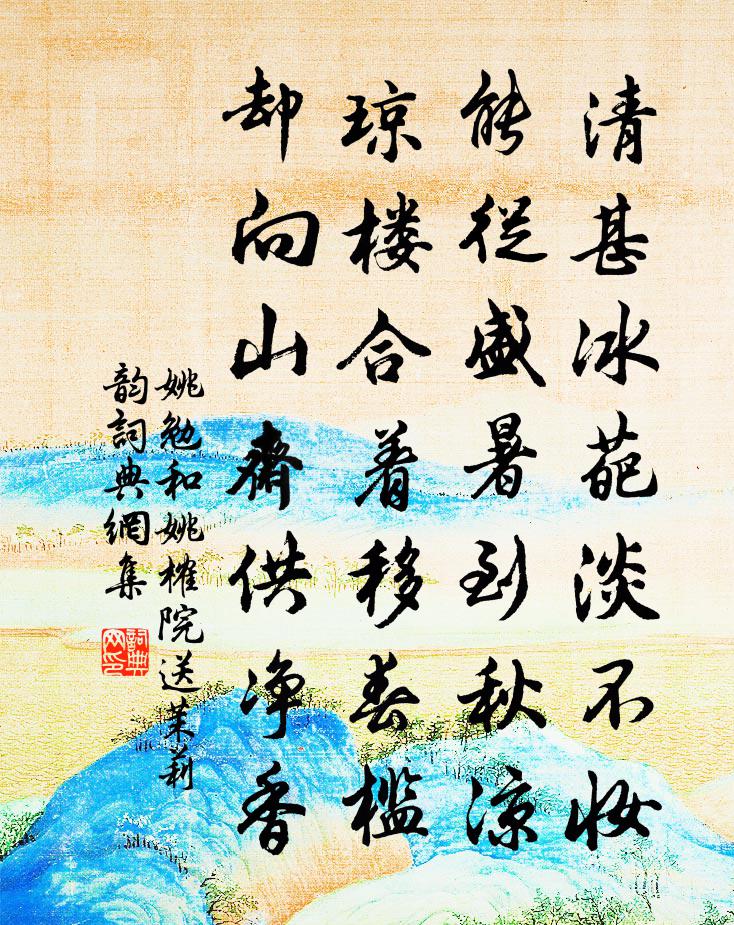 清甚冰葩淡不妆
能从盛暑到秋凉
琼楼合着移春槛
却向山斋供净香
姚勉和姚榷院送茉莉
韵詞典網集
詞典网印